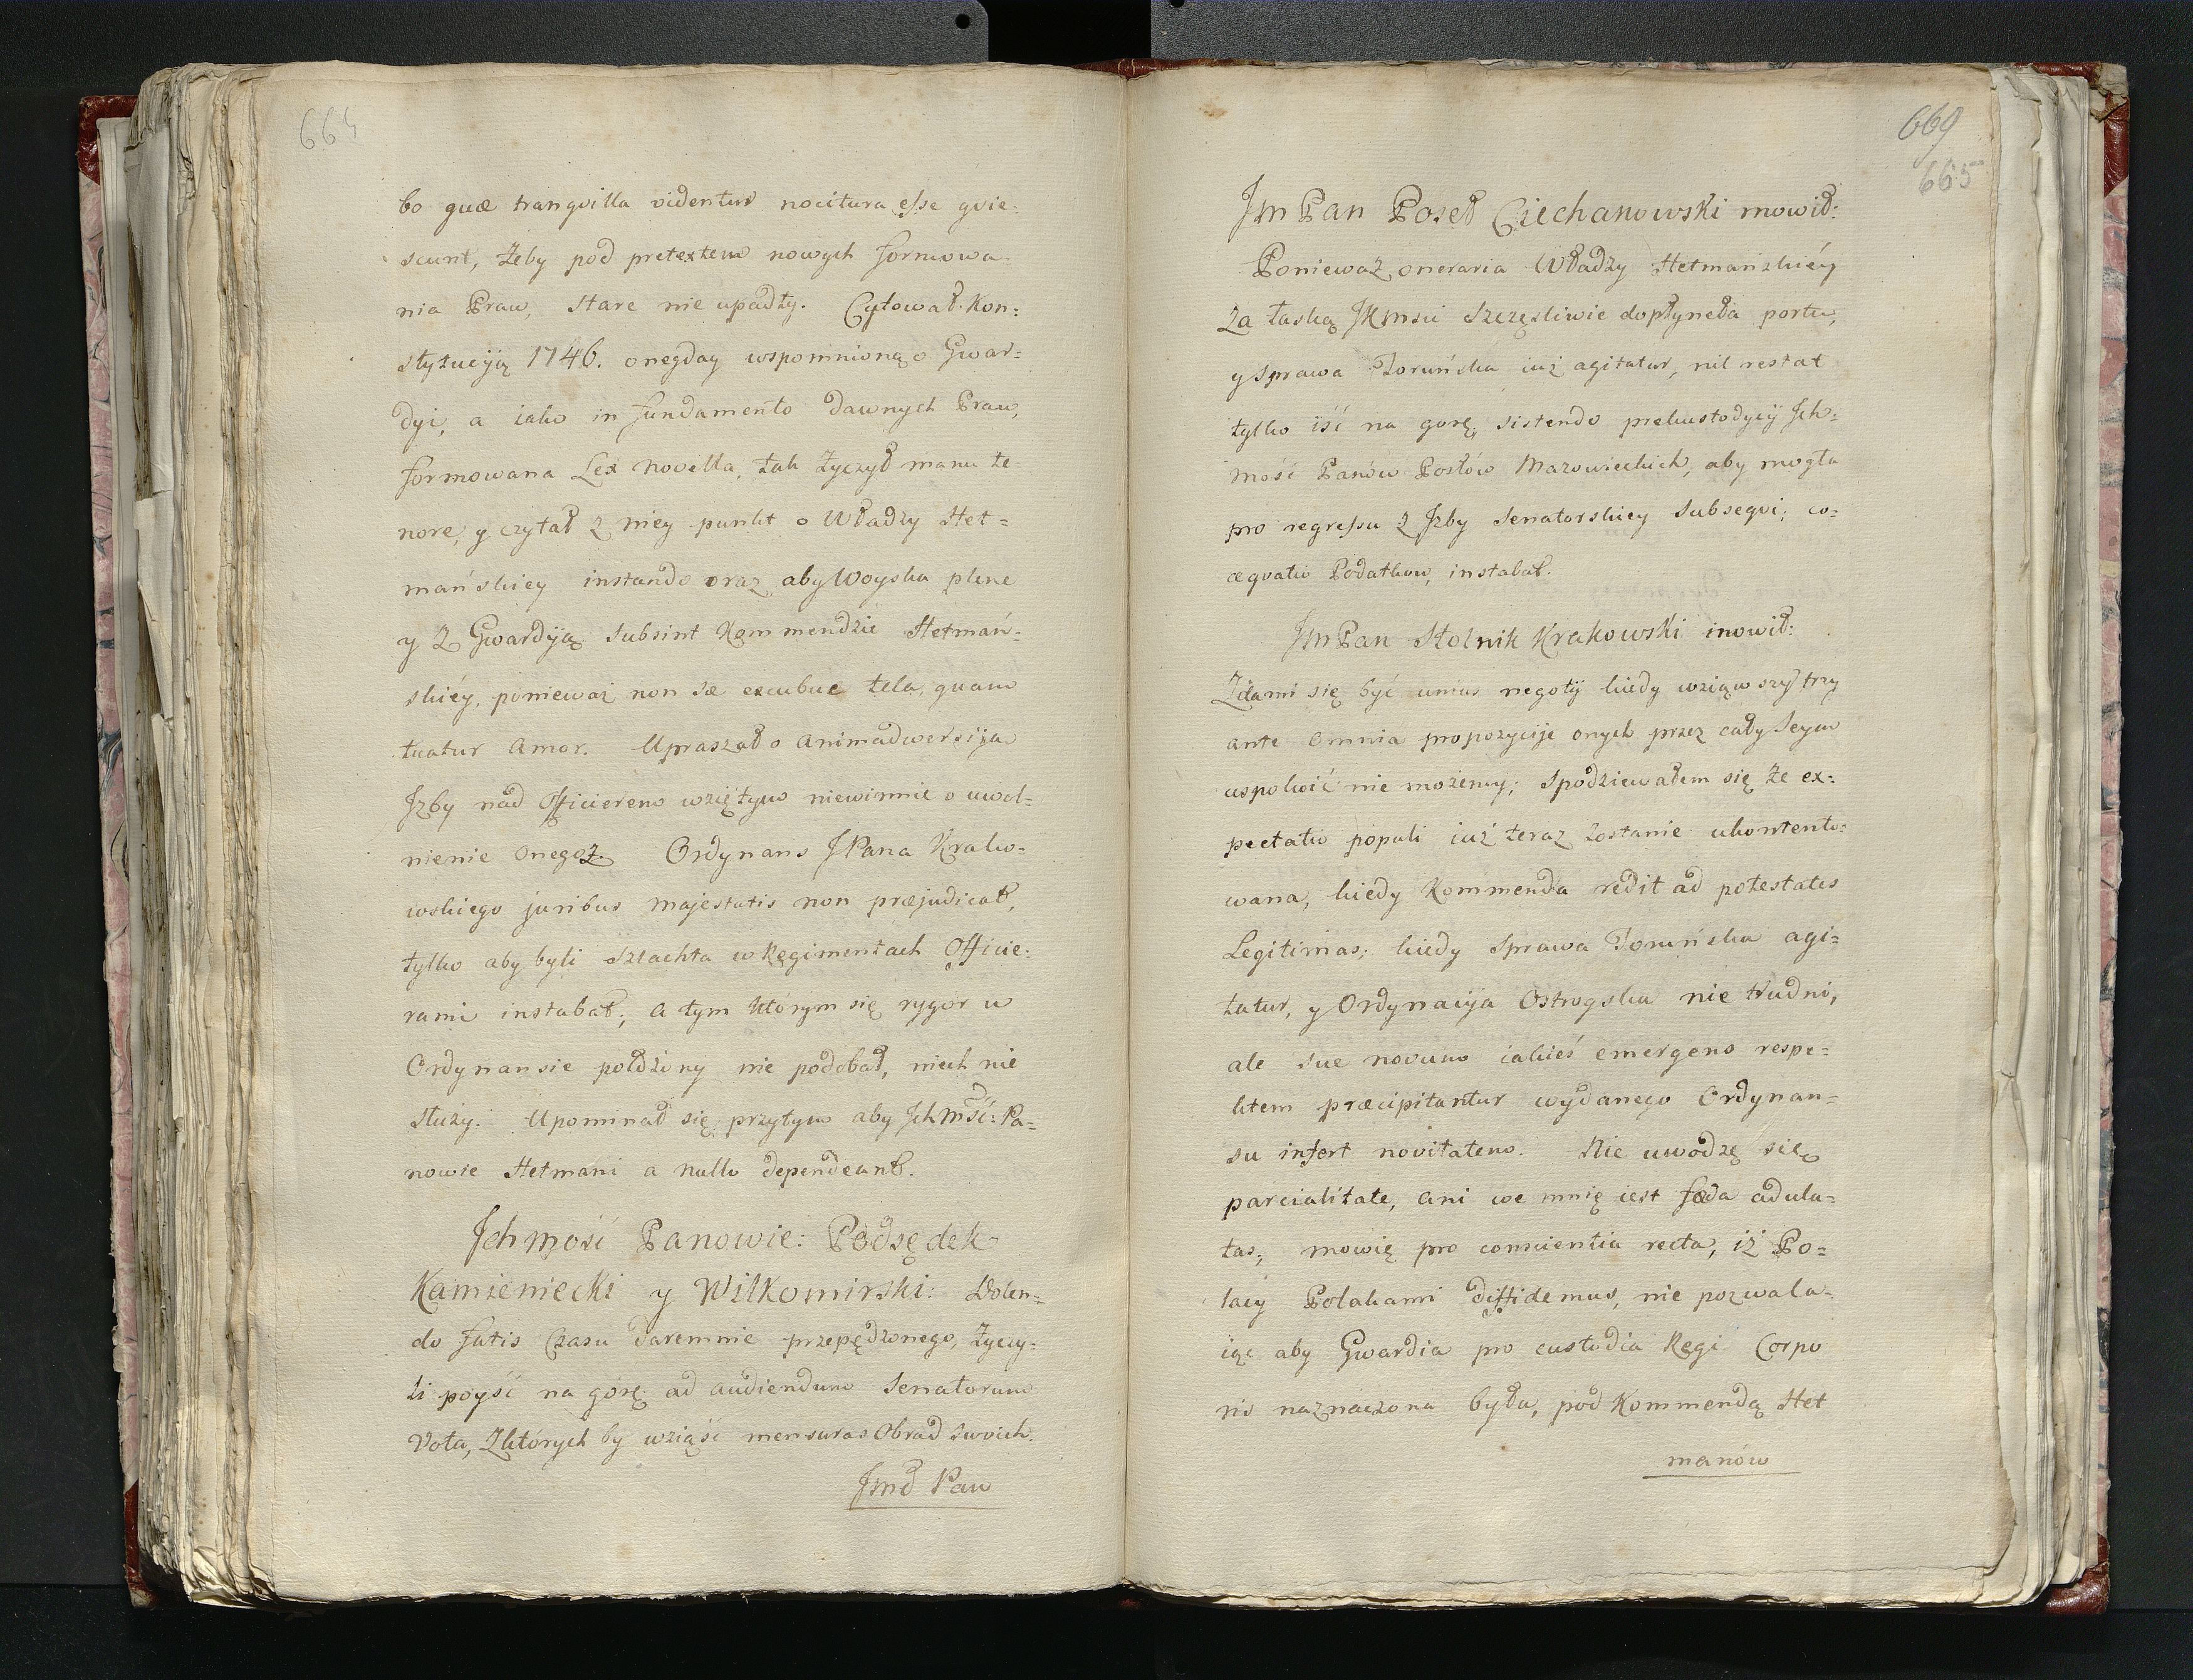 664
bo quæ tranqvilla videntur nocitura eſse qvie:
scunt, żeby pod pretextem nowych formowa:
nia Praw, stare nie upadły. Cytował Kon:
stytucyją 1746. onegday wspomnioną o Gwar=
dyi, a iako in fundamento dawnych Praw,
formowana Lex novella, tak życzył manu te
nore, y czytał z niey punkt o Władzy Het=
mańskiey instando oraz aby Woyska plene
y z Gwardyją subsint Kommendzie Hetmań=
skiéy, ponieważ non sæ excubue tela, quam
tuatur Amor. Upraszał o animadwersyją
Jzby nad Officierem wziętym niewinnie o uwol=
nienie onegoż. Ordynans JPana Krako=
wskiego juribus majestatis non præjudicat,
tylko aby byli szlachta w Regimentach Officie:
rami instabat; a tym którym się rygor w
Ordynansie położony nie podobał, niech nie
służy. Upominał się przytym aby Jch Mść: Pa=
nowie Hetmani a nullo dependeant.
Jchmość Panowie: Podsędek
Kamieniecki y Wiłkomirski: Dolen=
do fatis Czasu daremnie przepędzonego, życzy=
li poyść na górę ad audiendum Senatorum
Vota, z których by wziąść mensuras Obrad swoich.
Jmć Pan
669
665
Jm Pan Poseł Ciechanowski mowił:
Ponieważ oneraria Władzy Hetmańskiéy
za łaską JKmści szczęśliwie dopłyneła portu,
y sprawa Toruńska iuż agitatur, nil restat
tylko iść na gorę, sistendo prekustodycyi Jch=
mość Panów Posłów Mazowieckich, aby mogła
pro regreſsu z Jzby Senatorskiey subseqvi; co=
æqvatio Podatkow, instabat.
Jm Pan Stolnik Krakowski mowił:
Zda mi się być unius negotij kiedy wziąwszy trzy
ante omnia propozycije onych przez cały Seym
uspokoić nie możemy; Spodziewałem się że ex=
pectatio populi iuż teraz zostanie ukontento=
wana, kiedy Kommenda redit ad potestates
Legitimas; kiedy Sprawa Toruńska agi=
tatur, y Ordynacyja Ostrogska nie trudni,
ale sue novum iakieś emergens respe=
ktem præcipitantur wydanego Ordynan=
su infert novitatem. Nie uwodzę się
parcialitate, ani we mnię iest fæda adula=
tas; mowię pro conscientia recta, iż Po=
lacy Polakami diffidemus, nie pozwala=
iąc aby Gwardia pro custodia Regi Corpo
ris naznaczona była, pod Kommendą Het
manów